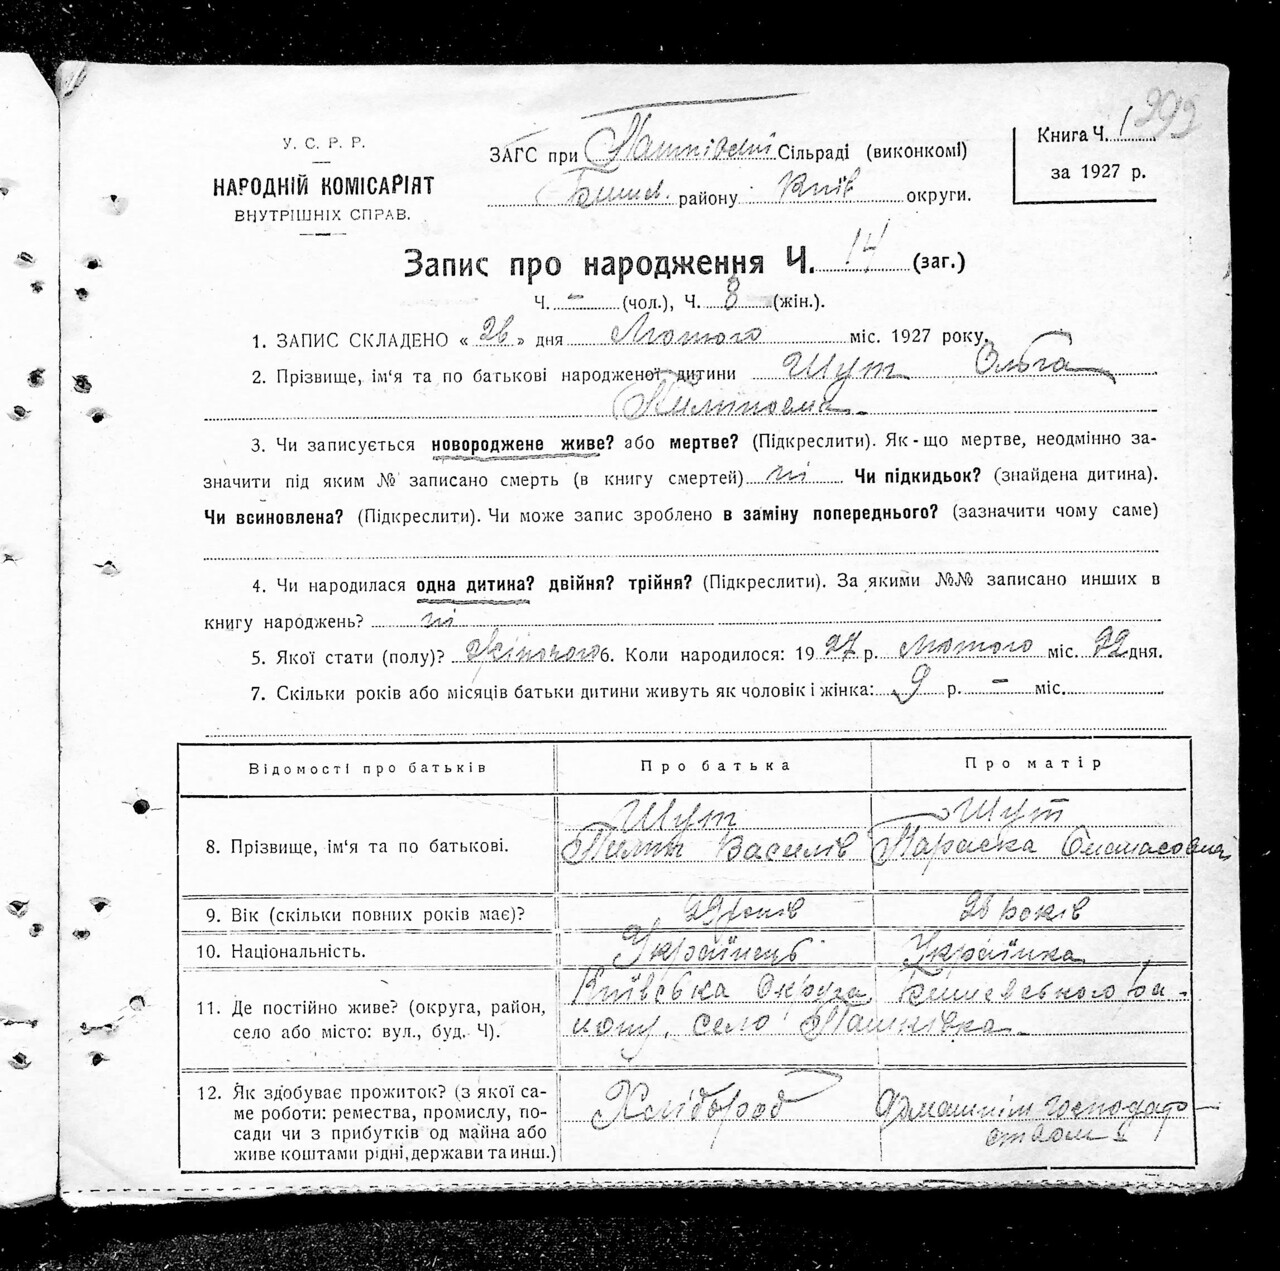 292
У. С. Р. Р.
НАРОДНІЙ КОМІСАРІЯТ
ВНУТРІШНІХ СПРАВ.
ЗАГС при Пашківській Сільраді (виконкомі)
Бишів. району Київ округи.
Книга Ч. 1
за 1927 р.
Запис про народження Ч. 14 (заг.)
Ч. - (чол.), Ч. 8 (жін.).
1. ЗАПИС СКЛАДЕНО « 26 » дня Лютого міс. 1927 року.
2. Прізвище, ім'я та по батькові народженої дитини Шут Ольга
Пилиповна
3. Чи записується новороджене живе? або мертве? (Підкреслити). Як-що мертве, неодмінно за-
значити під яким № записано смерть (в книгу смертей) ні Чи підкидьок? (знайдена дитина).
Чи всиновлена? (Підкреслити). Чи може запис зроблено в заміну попереднього? (зазначити чому саме)
4. Чи народилася одна дитина? двійня? трійня? (Підкреслити). За якими №№ записано инших в
книгу народжень? ні
5. Якої стати (полу)? Жіночого 6. Коли народилося: 1927 р. Лютого міс. 22 дня.
7. Скільки років або місяців батьки дитини живуть як чоловік і жінка: 9 р. - міс.
Відомості про батьків Про батька Про матір
8. Прізвище, ім'я та по батькові. Шут Пилип Василів Шут Параска
9. Вік (скільки повних років має)? 29 років 26 років
10. Національність. Українець Українка
11. Де постійно живе? (округа, район,
село або місто: вул., буд. Ч). Київська Округа Бишевського ра-
йону, село Пашківка
12. Як здобуває прожиток? (з якої са-
ме роботи: ремества, промислу, по-
сади чи з прибутків од майна або
живе коштами рідні, держави та инш.) Хлібороб Домашнім господар
ством